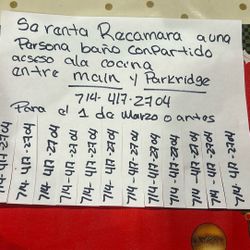 Se renta Recamara a una
Persona baño conPartido
acseso ala cocina
entre main y Parkridge
714-417-2704
Para el 1 de Marzo o antes
714-417-2704
714-417-2704
714-417-2704
714-417-2704
714-417-2704
714-417-2704
714-417-2704
714-417-2704
714-417-2704
714-417-2704
714-417-2704